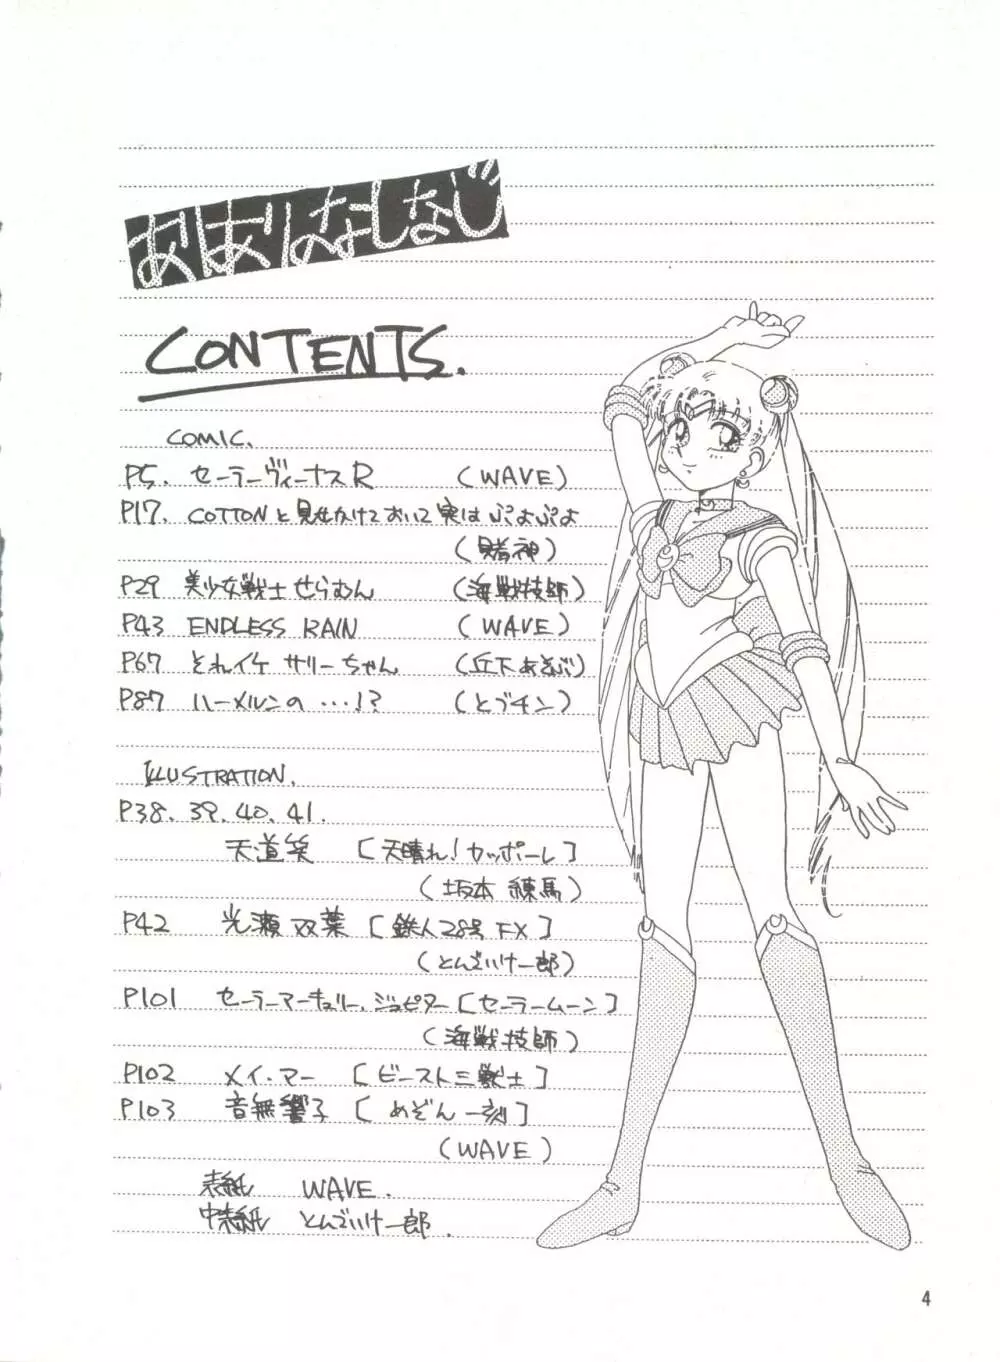 あはりのなしなじ
CONTENTS.
COMIC.
P5. セーラーヴィーナスR (WAVE)
P17. COTTONと見せかけておいて実はぷよぷよ
(賭神)
P29 美少女戦士せらむん (海戦技師)
P43 ENDLESS RAIN (WAVE)
P67 それイケ サリーちゃん (丘下あそぶ)
P87 ハーメルンの・・・!? (とブチン)
ILLUSTRATION.
P38. 39. 40. 41.
天道笑 [天晴れ!カッポーレ]
(坂本 練馬)
P42 光瀬 双葉 [鉄人28号 FX]
(とんでいけ一郎)
P101 セーラーマーキュリー. ジュピター [セーラームーン]
(海戦技師)
P102 メイ・マー [ビースト三獣士]
P103 音無響子 [めぞん一刻]
(WAVE)
表紙 WAVE.
中表紙 とんでいけ一郎.
4